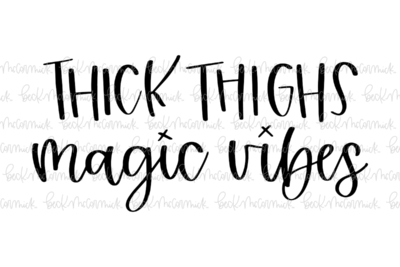 THICK THIGHS
magic vibes